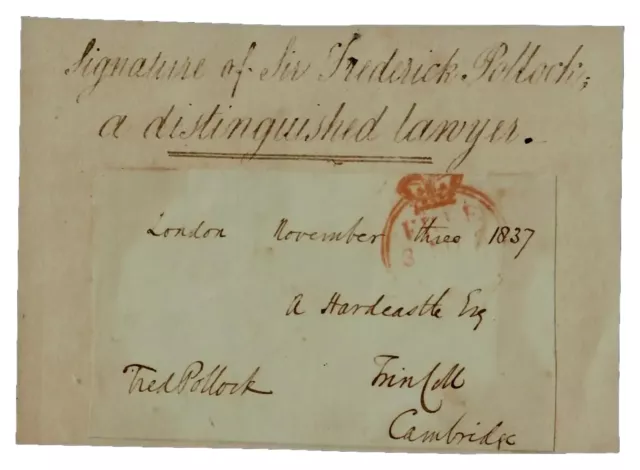 Signature of Sir Frederick Pollock;
a distinguished lawyer.
London November three 1837
A Hardcastle Esq
Fred Pollock
Trin Coll
Cambridge